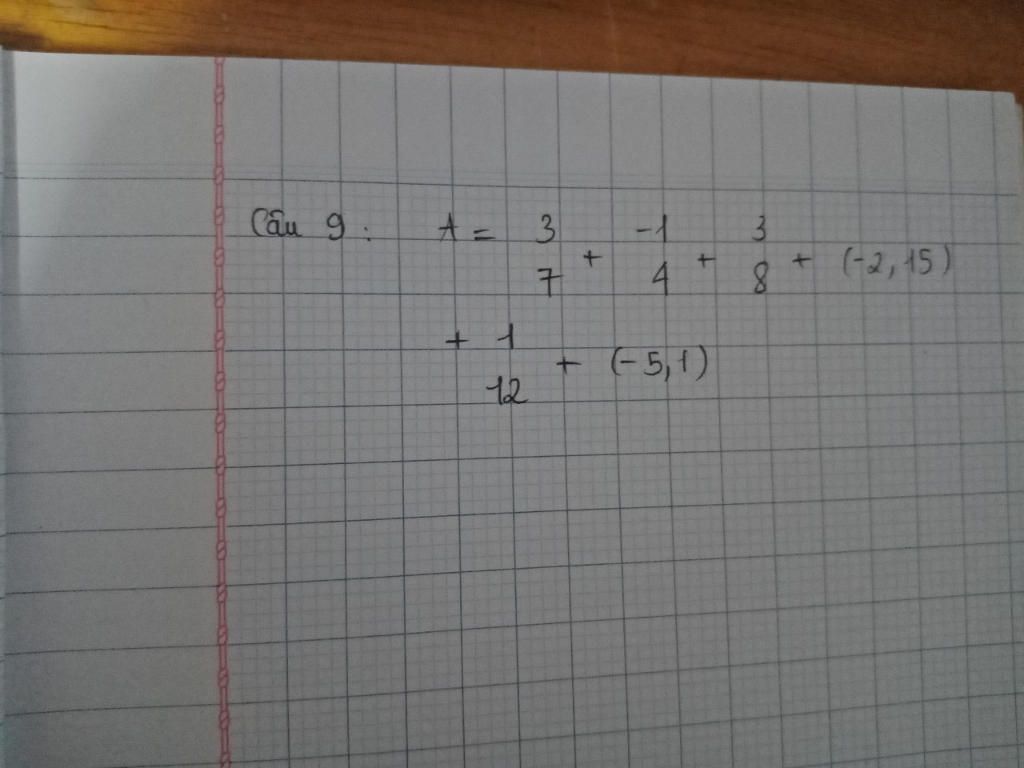 Câu 9 : A = 3/7 + -1/4 + 3/8 + (-2,15)
+ 1/12 + (-5,1)